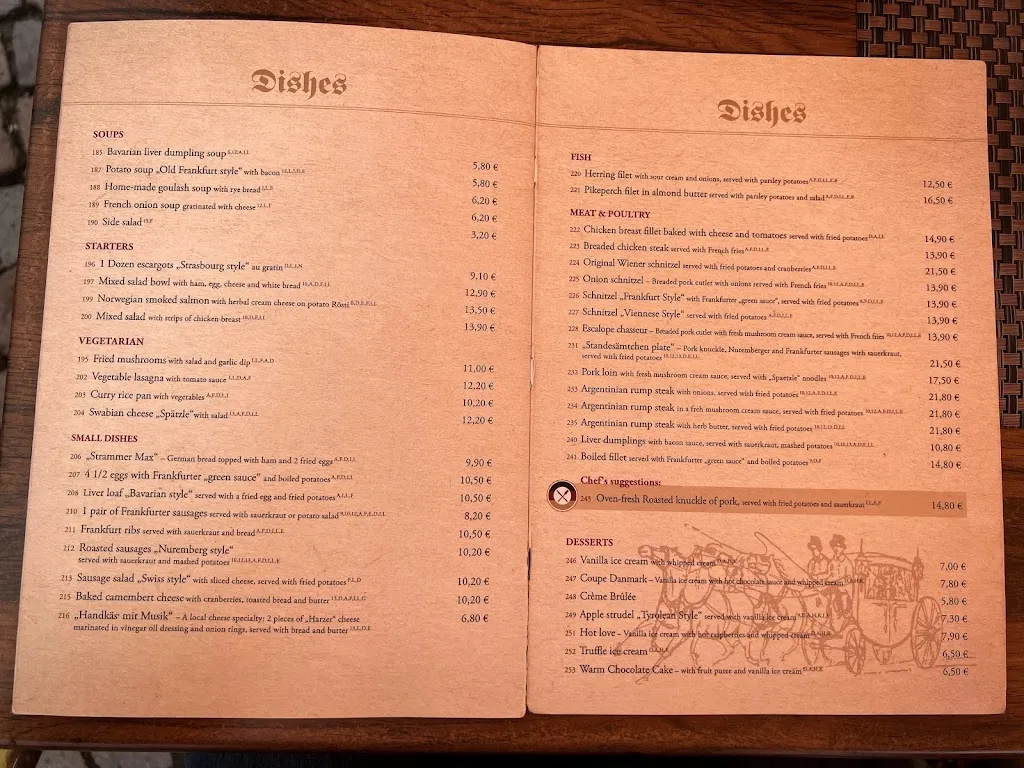 Dishes
SOUPS
185 Bavarian liver dumpling soup 5,80 €
187 Potato soup „Old Frankfurt style" with bacon 5,80 €
188 Home-made goulash soup with rye bread 6,20 €
189 French onion soup gratinated with cheese 6,20 €
190 Side salad 3,20 €
STARTERS
196 1 Dozen escargots „Strasbourg style" au gratin 9,10 €
197 Mixed salad bowl with ham, egg, cheese and white bread 12,90 €
199 Norwegian smoked salmon with herbal cream cheese on potato Rösti 13,50 €
200 Mixed salad with strips of chicken breast 13,90 €
VEGETARIAN
195 Fried mushrooms with salad and garlic dip 11,00 €
202 Vegetable lasagna with tomato sauce 12,20 €
203 Curry rice pan with vegetables 10,20 €
204 Swabian cheese „Spätzle" with salad 12,20 €
SMALL DISHES
206 „Strammer Max" – German bread topped with ham and 2 fried eggs 9,90 €
207 4 1/2 eggs with Frankfurter „green sauce" and boiled potatoes 10,50 €
208 Liver loaf „Bavarian style" served with a fried egg and fried potatoes 10,50 €
210 1 pair of Frankfurter sausages served with sauerkraut or potato salad 8,20 €
211 Frankfurt ribs served with sauerkraut and bread 10,50 €
212 Roasted sausages „Nuremberg style" 10,20 €
served with sauerkraut and mashed potatoes
213 Sausage salad „Swiss style" with sliced cheese, served with fried potatoes 10,20 €
215 Baked camembert cheese with cranberries, toasted bread and butter 10,20 €
216 „Handkäs mit Musik" – A local cheese specialty: 2 pieces of "Harzer" cheese 6,80 €
marinated in vinegar oil dressing and onion rings, served with bread and butter
Dishes
FISH
220 Herring filet with sour cream and onions, served with parsley potatoes 12,50 €
221 Pikeperch filet in almond butter served with parsley potatoes and salad 16,50 €
MEAT & POULTRY
222 Chicken breast fillet baked with cheese and tomatoes served with fried potatoes 14,90 €
223 Breaded chicken steak served with French fries 13,90 €
224 Original Wiener schnitzel served with fried potatoes and cranberries 21,50 €
225 Onion schnitzel – Breaded pork cutlet with onions served with French fries 13,90 €
226 Schnitzel „Frankfurt Style" with Frankfurter „green sauce", served with fried potatoes 13,90 €
227 Schnitzel „Viennese Style" served with fried potatoes 13,90 €
228 Escalope chasseur – Breaded pork cutlet with fresh mushroom cream sauce, served with French fries 13,90 €
231 „Standesämtchen plate" – Pork knuckle, Nuremberger and Frankfurter sausages with sauerkraut, 21,50 €
served with fried potatoes
232 Pork loin with fresh mushroom cream sauce, served with „Spaetzle" noodles 17,50 €
233 Argentinian rump steak with onions, served with fried potatoes 21,80 €
234 Argentinian rump steak in a freh mushroom cream sauce, served with fried potatoes 21,80 €
235 Argentinian rump steak with herb butter, served with fried potatoes 21,80 €
240 Liver dumplings with bacon sauce, served with sauerkraut, mashed potatoes 10,80 €
241 Boiled fillet served with Frankfurter „green sauce" and boiled potatoes 14,80 €
Chef's suggestions:
243 Oven-fresh Roasted knuckle of pork, served with fried potatoes and sauerkraut 14,80 €
DESSERTS
246 Vanilla ice cream with whipped cream 7,00 €
247 Coupe Danmark – Vanilla ice cream with hot chocolate sauce and whipped cream 7,80 €
248 Crème Brûlée 5,80 €
249 Apple strudel „Tyrolean Style" served with vanilla ice cream 7,30 €
251 Hot love – Vanilla ice cream with hot raspberries and whipped cream 7,90 €
252 Truffle ice cream 6,50 €
253 Warm Chocolate Cake – with fruit puree and vanilla ice cream 6,50 €